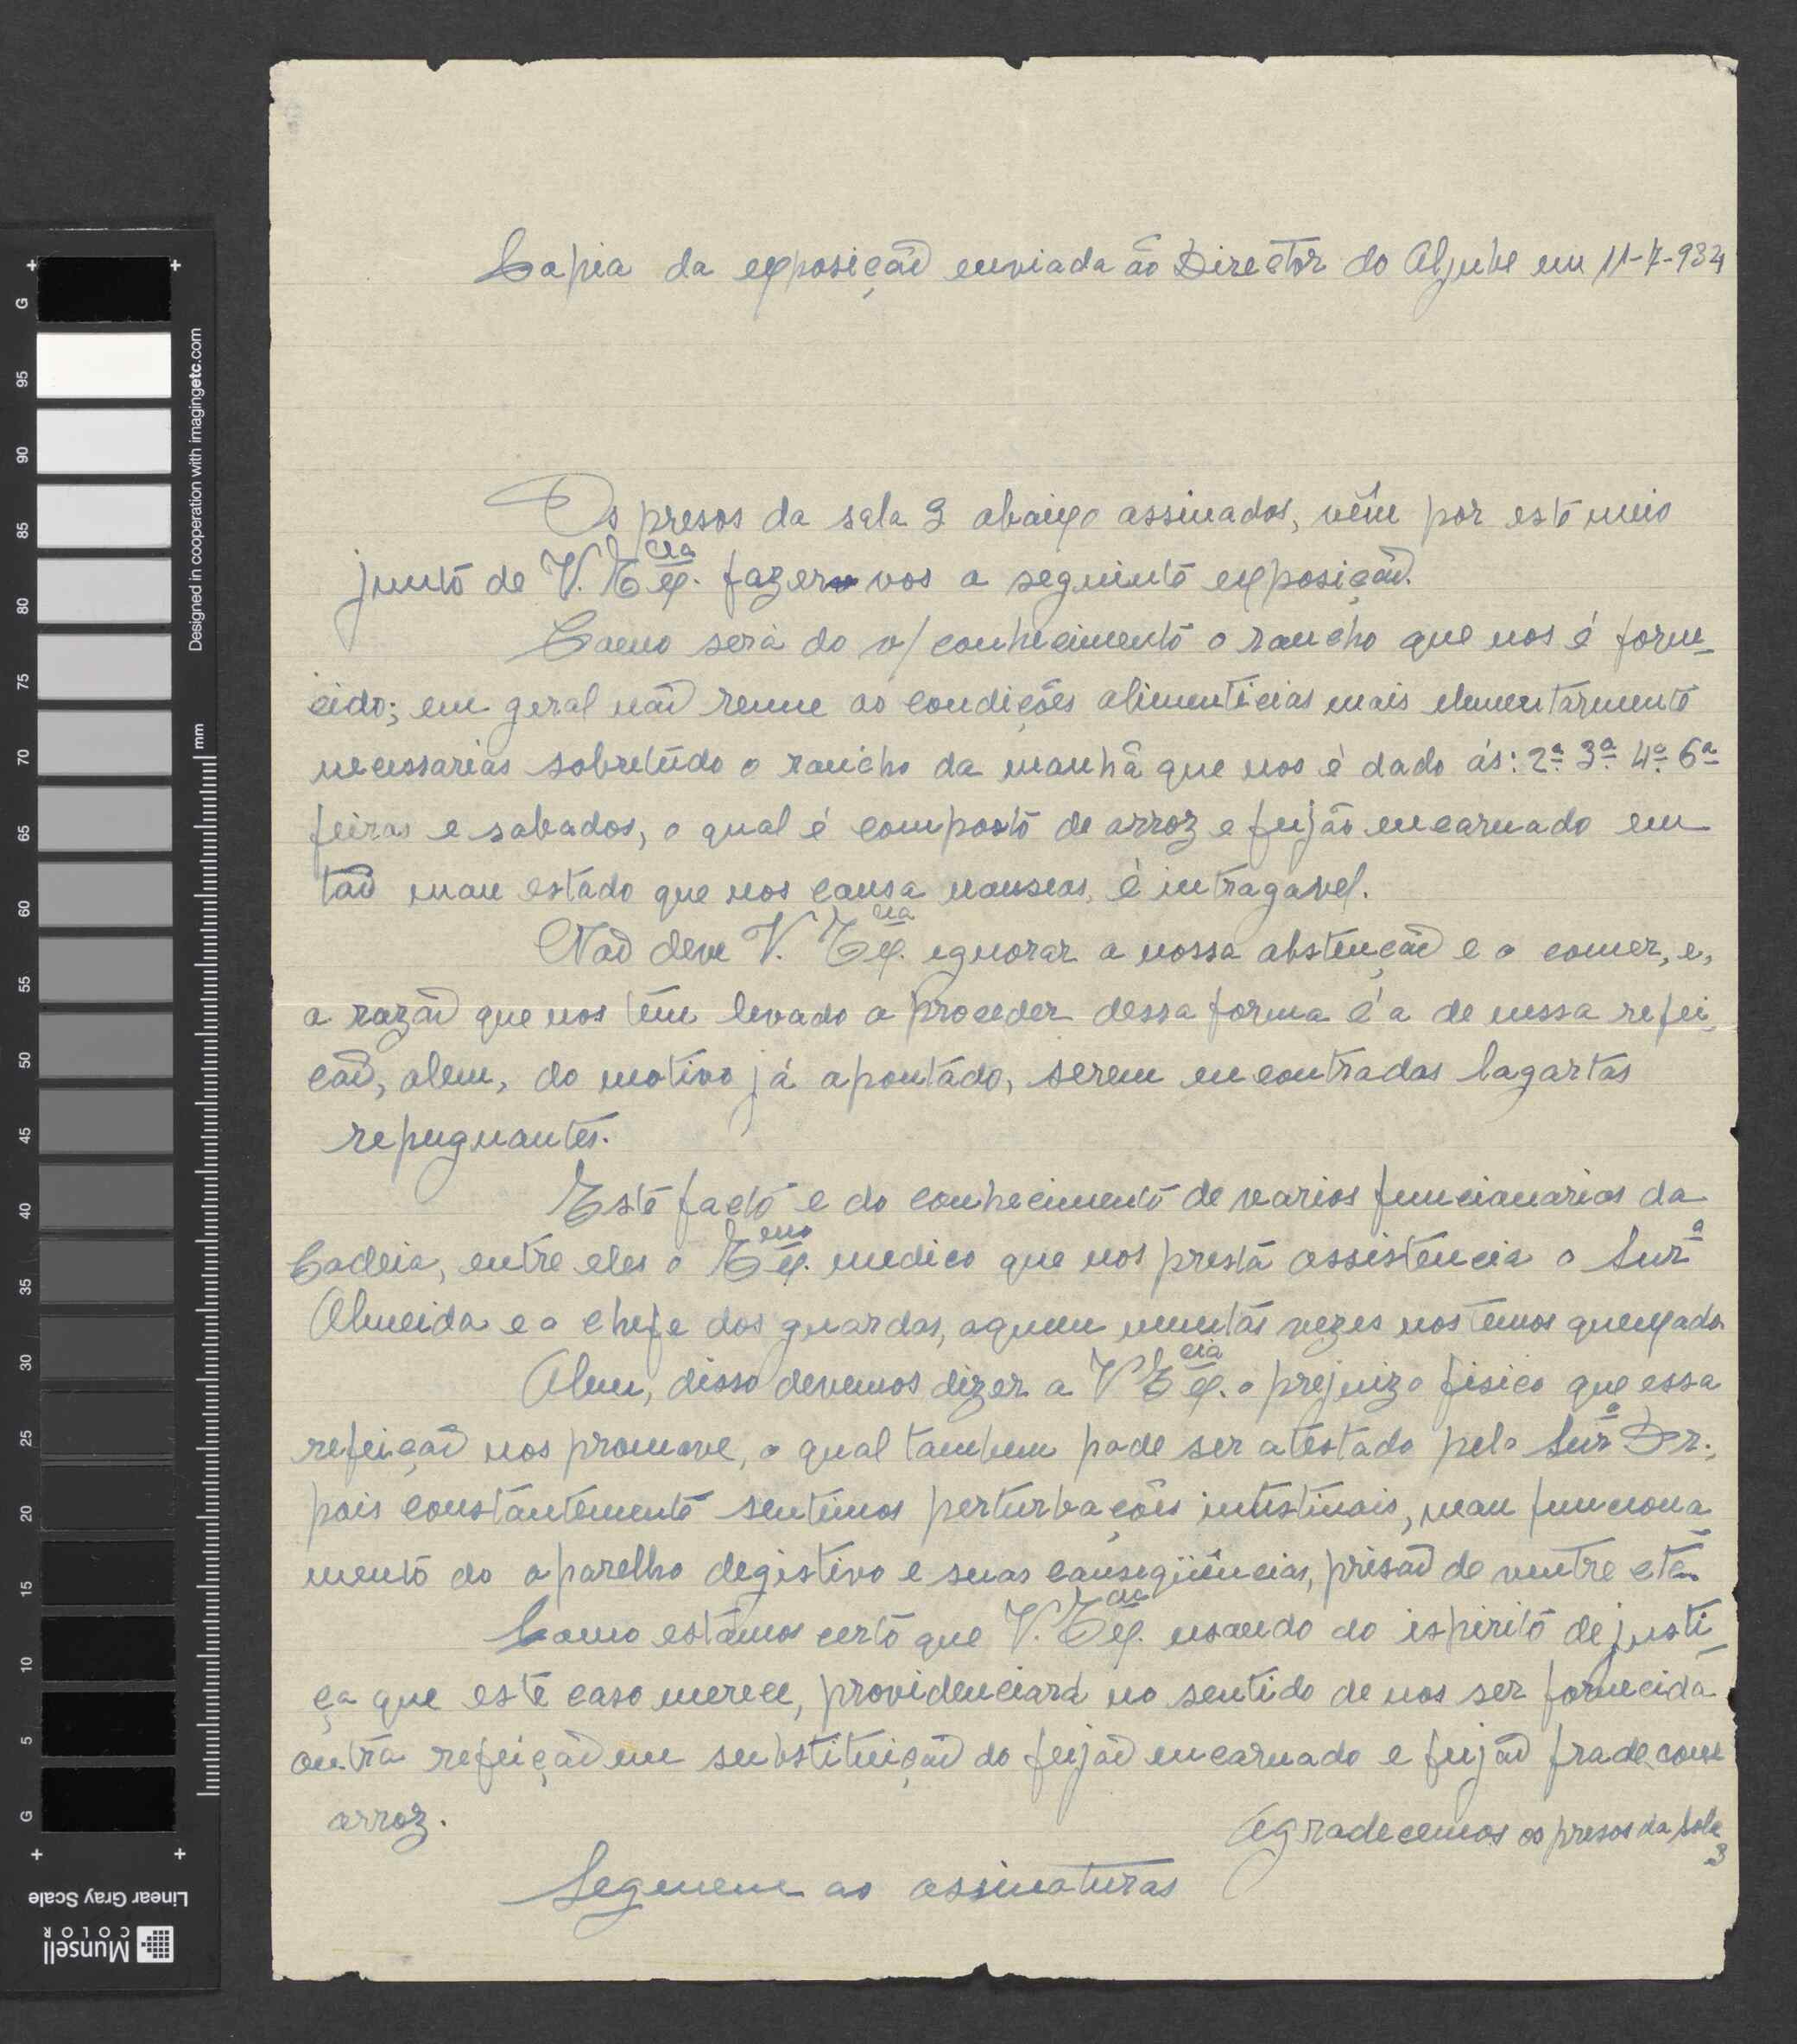 Copia da exposição enviada ao Director do Aljube em 11-7-934
Os presos da sala 3 abaixo assinados, vêm por este meio
junto de V. Ex.cia fazer vos a seguinte exposição.
Como será do v/ conhecimento o rancho que nos é forne-
cido; em geral não reune as condições alimenticias mais elementarmente
necessarias sobretudo o rancho da manhã que nos é dado ás: 2ª 3ª 4ª 6ª
feiras e sabados, o qual é composto de arroz e feijão encarnado em
tão mau estado que nos causa nauseas, é intragavel.
Não deve V. Ex.cia ignorar a nossa abstenção e o comer, e,
a razão que nos têm levado a proceder dessa forma é a de nessa refei-
cão, alem, do motivo já apontado, serem encontradas lagartas
repugnantes.
Este facto e do conhecimento de varios funcionarios da
Cadeia, entre eles o Ex.mo medico que nos presta assistencia o Snrº
Almeida e o chefe dos guardas, aquem muitas vezes nos temos queixado
Alem, disso devemos dizer a V Ex.cia o prejuizo fisico que essa
refeição nos promove, o qual tambem pode ser atestado pelo Snrº Dr.,
pois constantemente sentimos perturbações intestinais, mau funciona
mento do aparelho degistivo e suas conseqüências, prisão de ventre etc.
Como estamos certo que V. Ex.cia usando do espirito de justi-
ça que este caso merece, providenciará no sentido de nos ser fornecida
outra refeição em substituição do feijão encarnado e feijão frade com
arroz.
Agradecemos os presos da Sala
3
Seguem as assinaturas
+ +
G
95
90
85
80
75
70
65
60
55
50
45
40
35
30
25
20
15
10
5
G
+ +
mm
Designed in cooperation with imagingetc.com
Linear Gray Scale
Munsell
COLOR